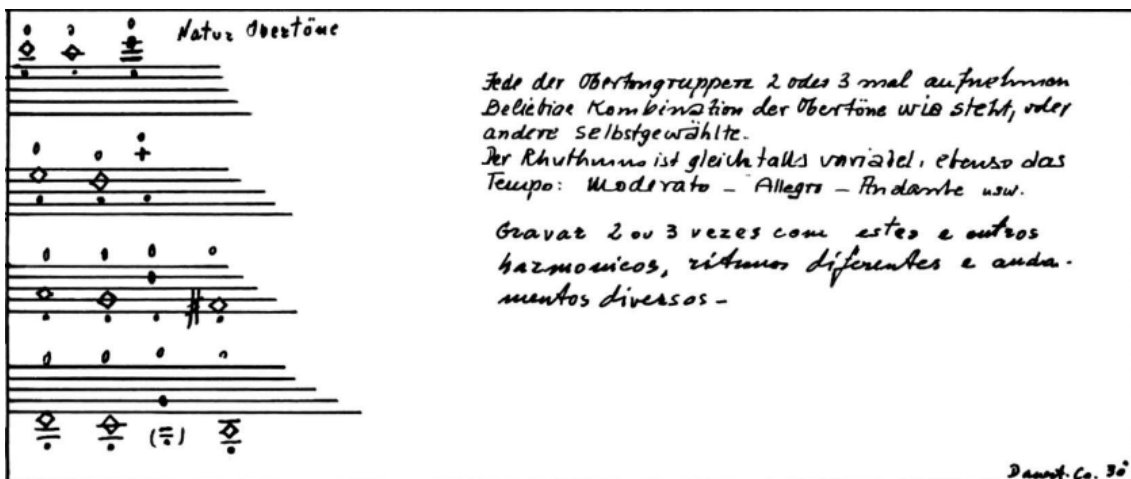 Natur Obertöne
Jede der Obertongruppen 2 oder 3 mal aufnehmen
Beliebige Kombination der Obertöne wie steht, oder
andere selbstgewählte.
Der Rhythmus ist gleichfalls variabel, ebenso das
Tempo: Moderato - Allegro - Andante usw.
Gravar 2 ou 3 vezes com estes e outros
harmonicos, ritmos diferentes e anda-
mentos diversos -
Co. 30"